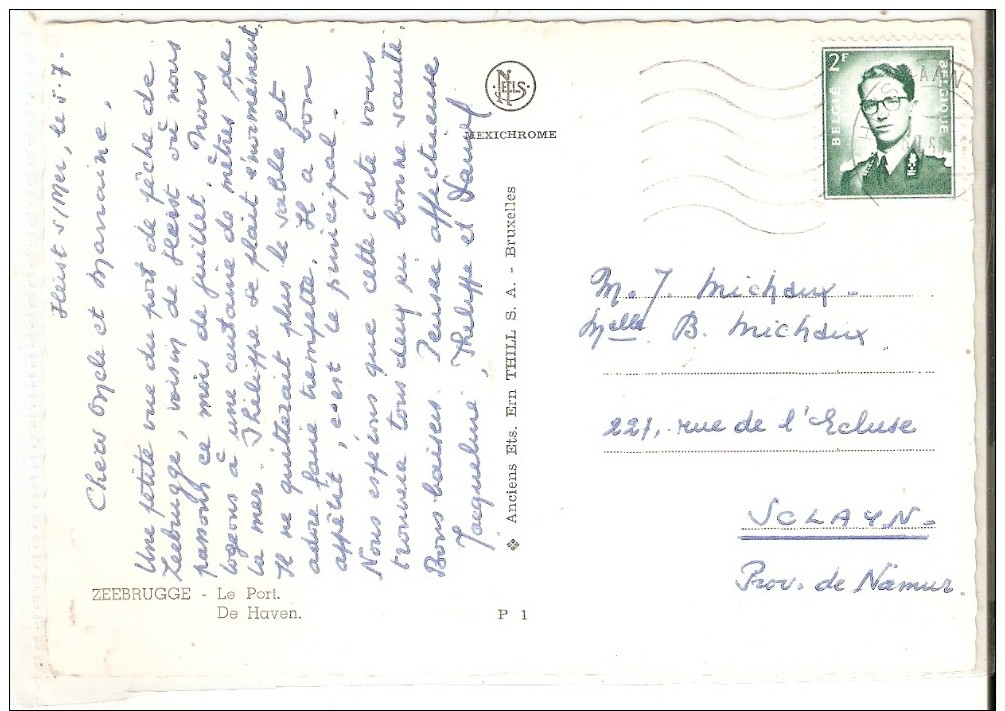 Heist s/Mer, le 5.7.
Chers Oncle et Marraine,
Une petite vue du port de pêche de
Zeebrugge, voisin de Heist où nous
passons ce mois de juillet. Nous
logeons à une centaine de mètres de
la mer. Philippe se plait énormément,
Il ne quitterait plus le sable et
adore faire trempette. Il a bon
appétit, c'est le principal.
Nous espérons que cette carte vous
trouvera tous deux en bonne santé.
Bons baisers. Pensée affectueuse
Jacqueline, Philippe et Daniel
ZEEBRUGGE - Le Port.
De Haven.
NELS
MEXICHROME
Anciens Ets. Ern THILL S. A. - Bruxelles
P 1
2F
BELGIË BELGIQUE
M. J. Michaux -
Melle B. Michaux
221, rue de l'Ecluse
SCLAYN-
Prov. de Namur.